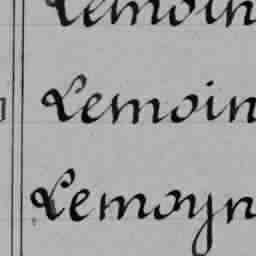 Lemoin
Lemoin
Lemoyn